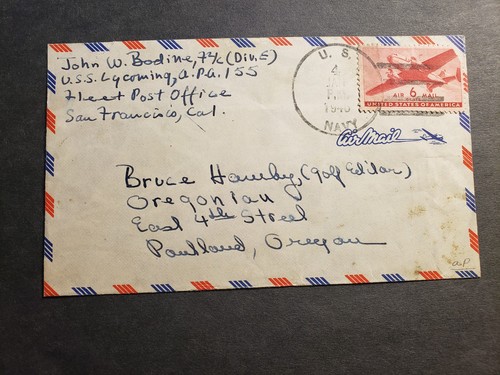 John W. Bodine, F1/c (Div. E)
U.S.S. Lycoming, A.P.A. 155
Fleet Post Office
San Francisco, Cal.
U. S.
4
1945
NAVY
AIR 6¢ MAIL
UNITED STATES OF AMERICA
Air Mail
Bruce Hamby, (Golf Editor)
Oregonian
East 4th Street
Portland, Oregon